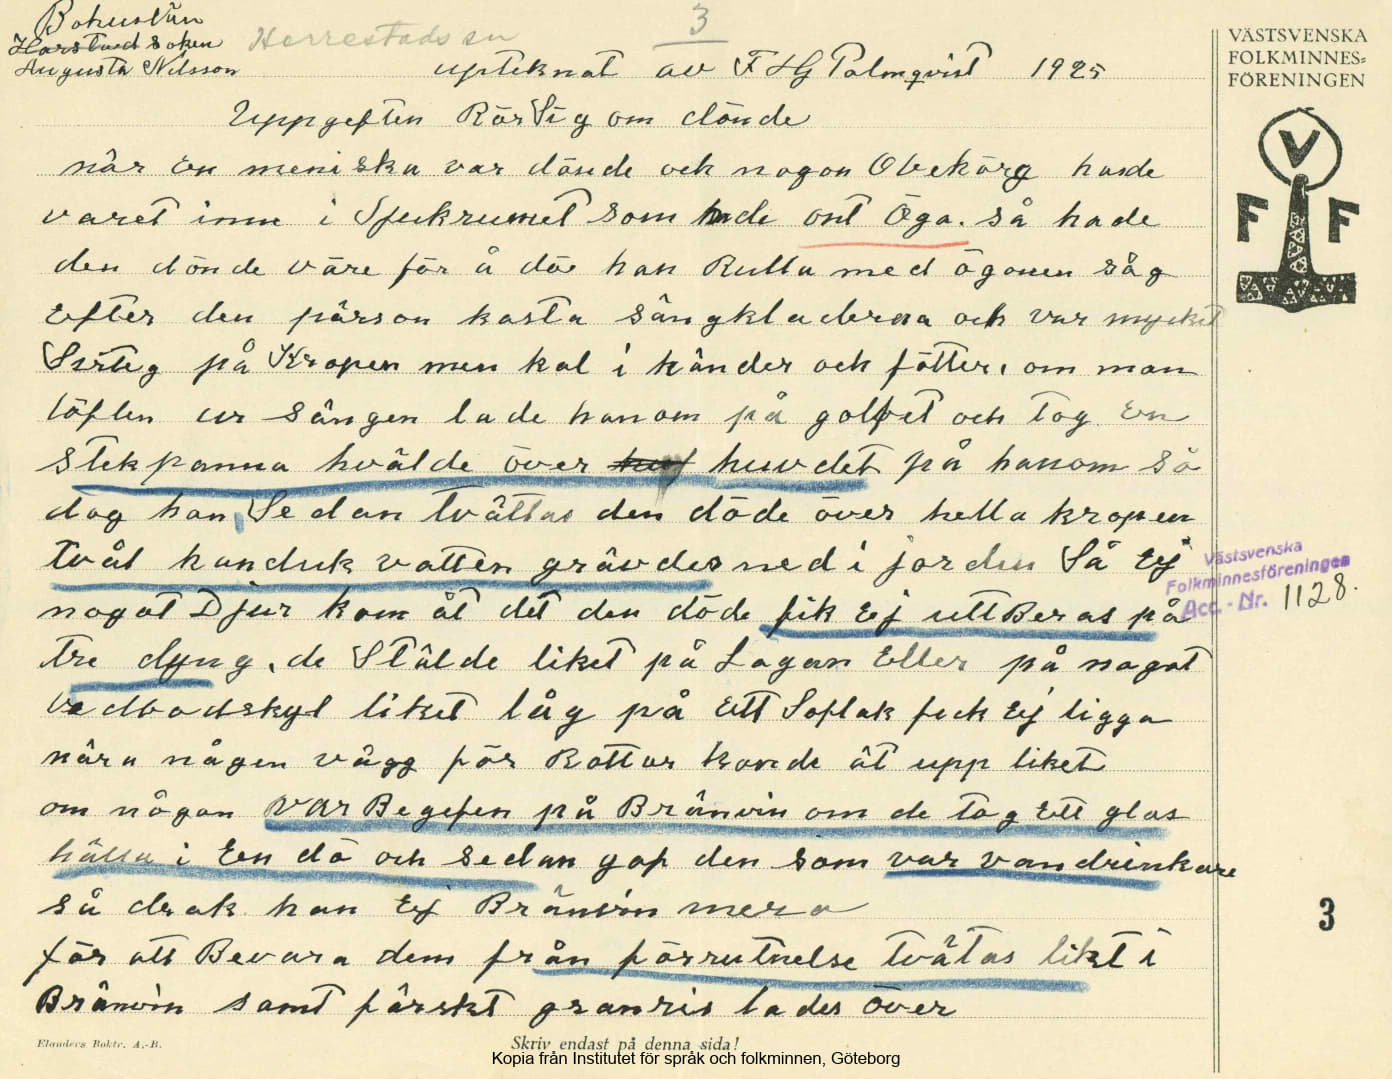 Bohuslän
Harstad Soken Herrestads sn
3
Augusta Nilsson upteknat av F HG Palmqvist 1925
VÄSTSVENSKA
FOLKMINNES=
FÖRENINGEN
V
F F
Uppgeften Rör Sig om dönde
när En meniska var dönde och nogon Obekörg hade
varet inne i Sjukrumet som hade ont Öga. så hade
den dönde väre för å dö han Rulla med ögonen såg
Efter den pärson kasta sängkläderna och var mycket
Sveteg på Kropen men kal i händer och fötter, om man
löften ur sängen lade hanom på golvet och tog En
stekpanna hvälde över huvdet på hanom så
dog han, Sedan tvättas den döde över hella kropen
tvål handuk vatten grävdes ned i jorden Så Ej
nogot Djur kom åt det den döde fik Ej utt Beras på
tre dyng, de Stälde liket på Lagan Eller på nagot
vedbodskyl liket låg på Ett Soflak feck Ej ligga
nära någen vägg för Rottur konde ät upp liket
om någon var Begefen på Bränvin om de tog Ett glas
hälla i Een dö och sedan gaf den som var vandrinkare
så drak han Ej Bränvin mera
för att Bevara dem från förrutnelse tvätas likt i
Bränvin samt färskt granris lades över
Västsvenska
Folkminnesföreningen
Acc. - Nr. 1128.
3
Elanders Boktr. A.-B.
Skriv endast på denna sida!
Kopia från Institutet för språk och folkminnen, Göteborg